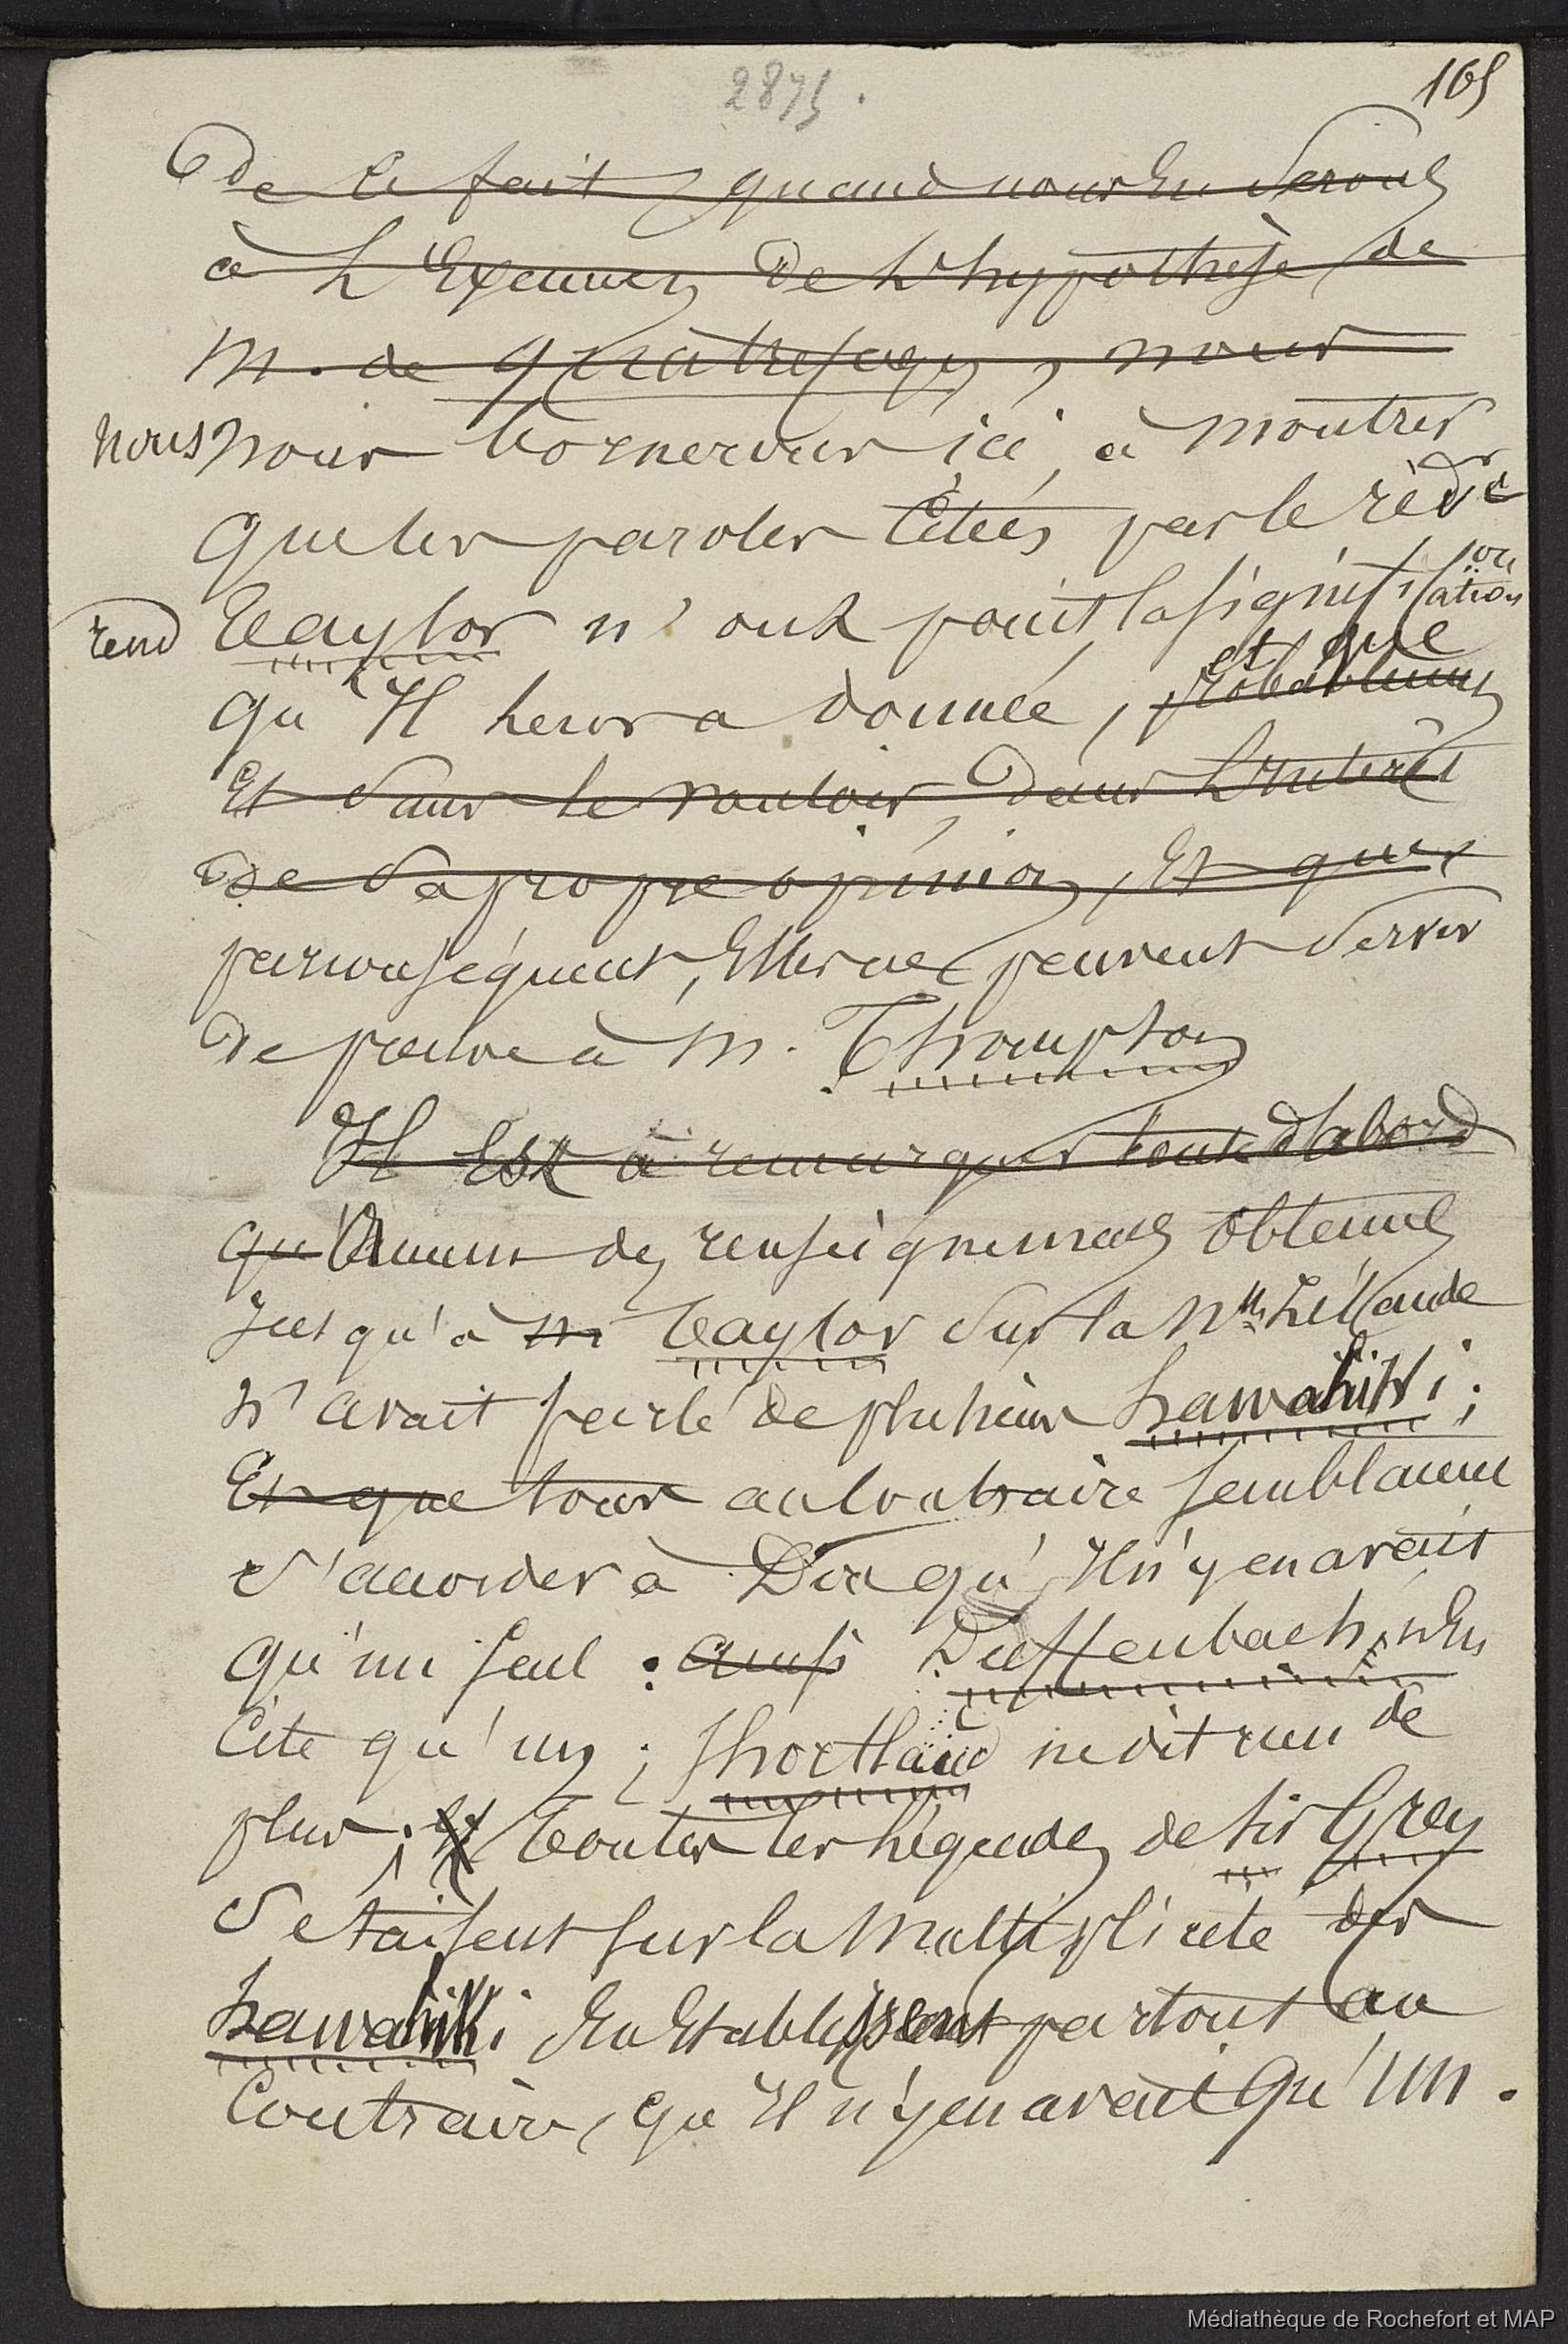 2875.
165
de ce fait, quand nous en serons
à L'Examen de L'hypothèse de
M. de Quatrefages, nous
nous nous bornerons ici, à montrer
que les paroles Citées par le rév
rend Taylor n'ont point la signification
et que
qu'Il leur a donnée, probablement
Et sans le vouloir, dans L'Intérêt
de sa propre opinion, Et que
par conséquent, Elles ne peuvent servir
de preuve à M. Thompson
Il Est à remarquer tout d'abord
qu'Aucun des renseignements obtenus
Jusqu'à M Taylor sur la Nlle Zélande
N'avait parlé de plusieurs hawahiki;
Et que tous au Contraire semblaient
s'accorder à Dire qu'Il n'y en avait
qu'un seul : Ainsi Dieffenbach, n'En
Cite qu'un; Shortland ne dit rien de
plus; Et toutes les légendes de sir Grey
se taisent sur la Multiplicité des
hawahiki En Etablissant partout au
Contraire, qu'Il n'y en avait qu'un.
Médiathèque de Rochefort et MAP